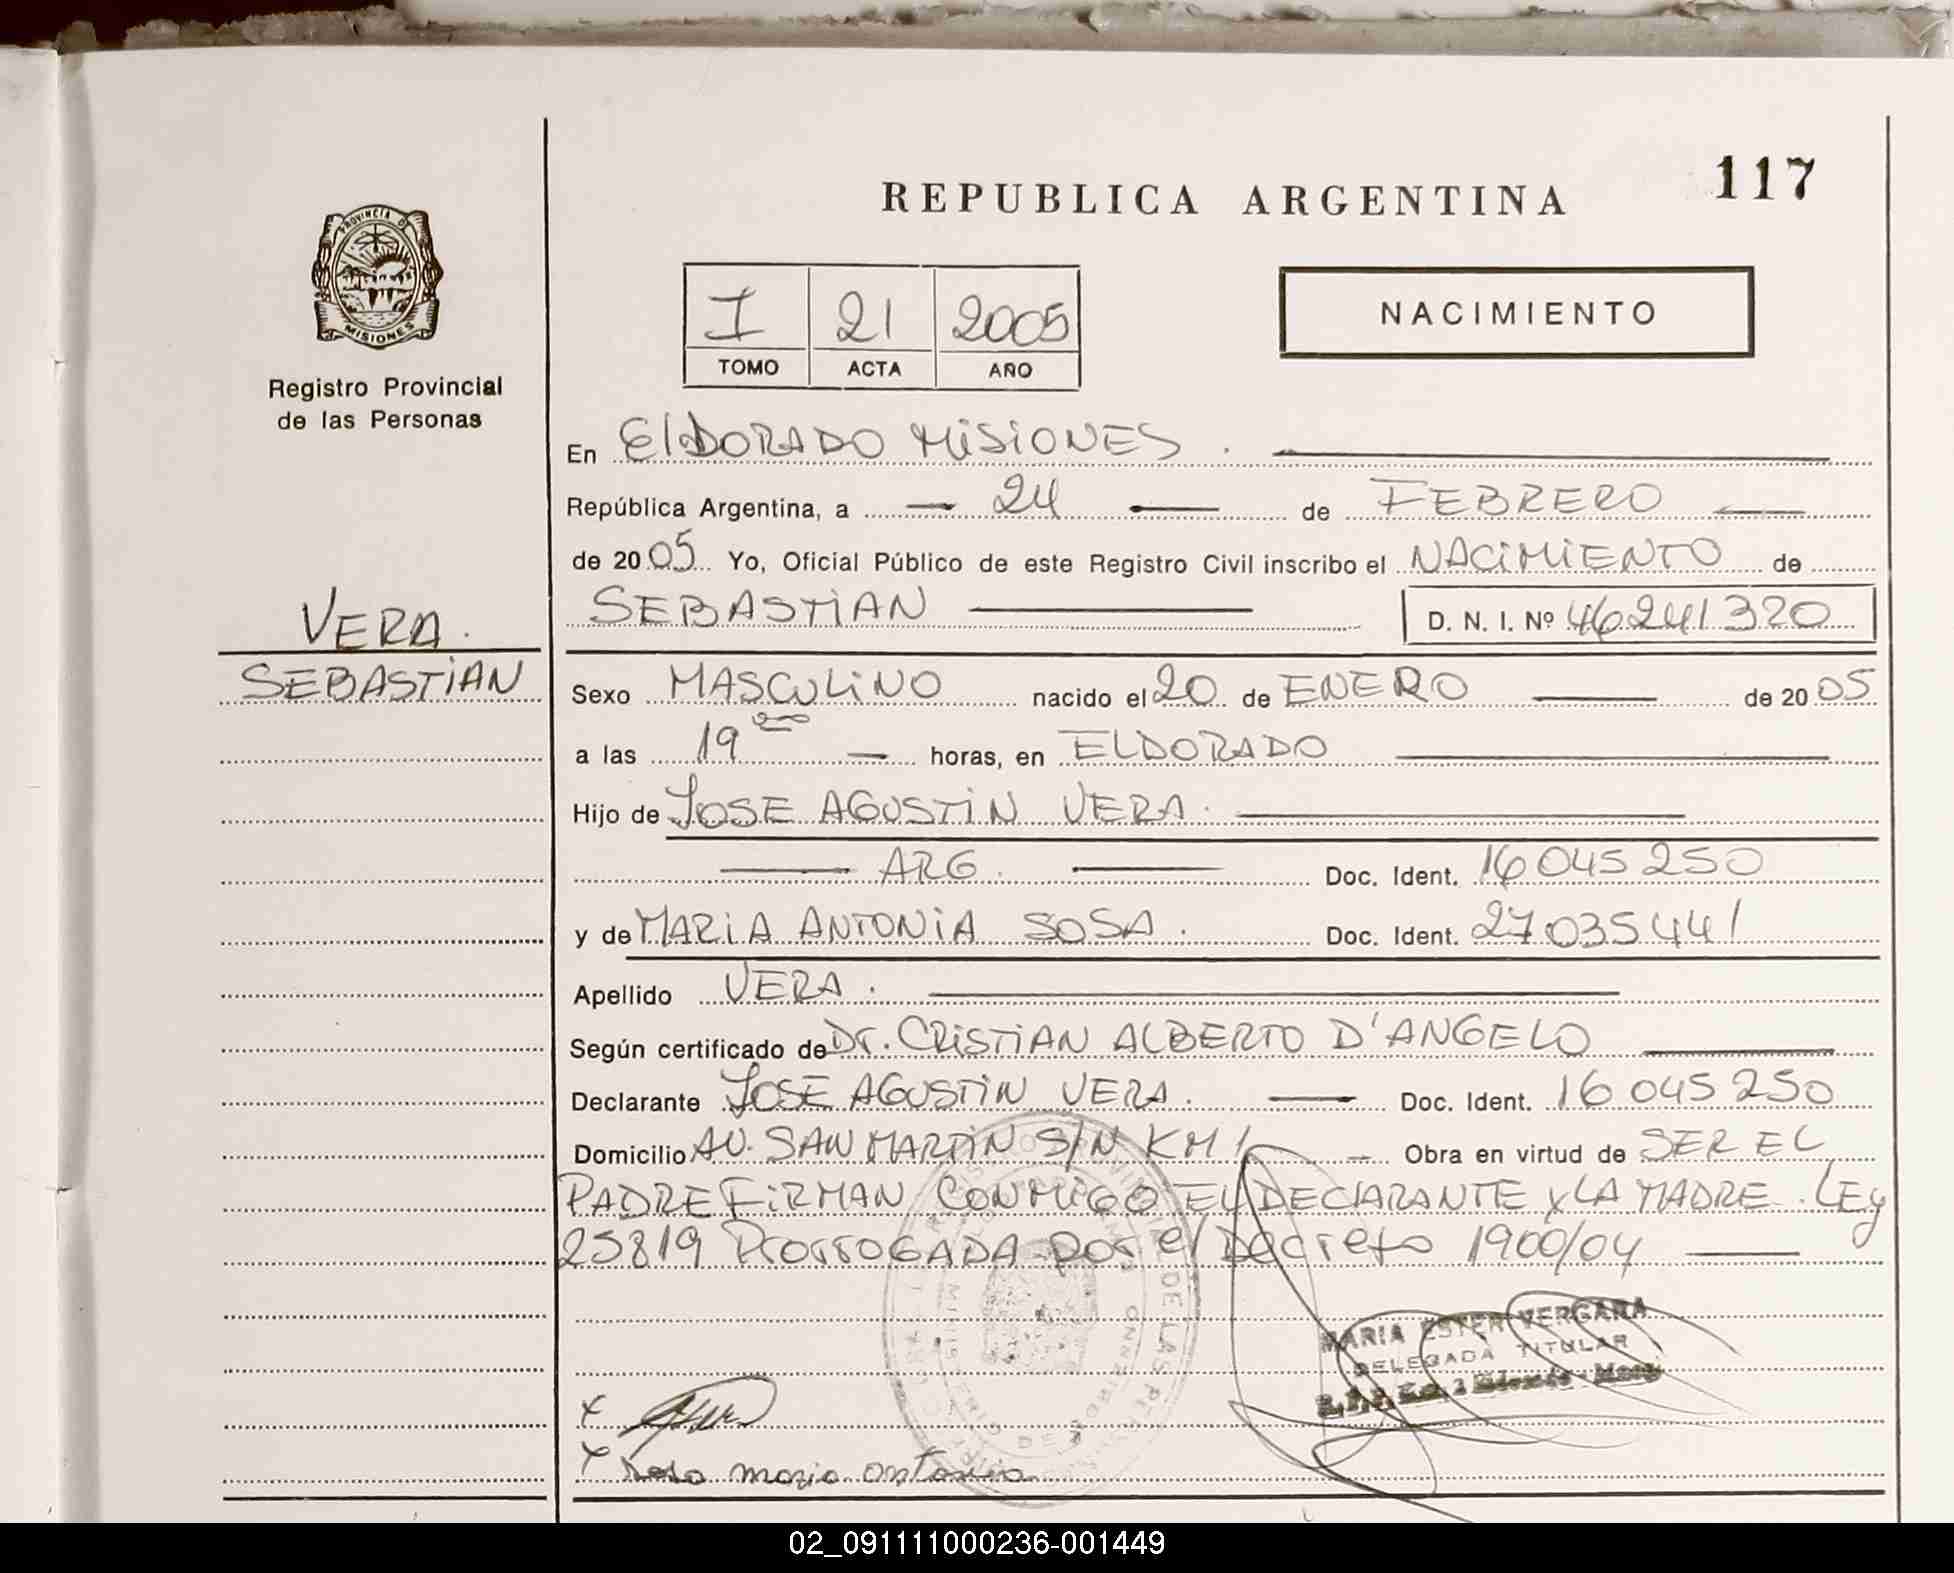 REPUBLICA ARGENTINA
117
PROVINCIA DE
MISIONES
Registro Provincial
de las Personas
I 21 2005
TOMO ACTA AÑO
NACIMIENTO
En ElDORADO MiSiONES.
República Argentina, a — 24 — de FEBRERO —
de 2005 Yo, Oficial Público de este Registro Civil inscribo el NACiMiENTO de
SEBASTiAN — D. N. I. Nº 46241320
VERA.
SEBASTiAN
Sexo MASCULiNO nacido el 20 de ENERO — de 2005
a las 19 ⁰⁰ — horas, en ELDORADO —
Hijo de JOSE AGUSTiN VERA. —
— ARG. — Doc. Ident. 16045250
y de MARiA ANTONiA SOSA. Doc. Ident. 27035441
Apellido VERA. —
Según certificado de Dr. CRiSTiAN ALBERTO D'ANGELO —
Declarante JOSE AGUSTiN VERA. — Doc. Ident. 16 045 250
Domicilio AV. SAN MARTiN S/N KM 1 — Obra en virtud de SER EL
PADRE FiRMAN CONMiGO El DEClARANTE y LA MADRE. LEy
25819 ProrroGADA por el Decreto 1900/04 —
MARIA ESTER VERGARA
DELEGADA TITULAR
x
x Sosa maria antonia
02_091111000236-001449